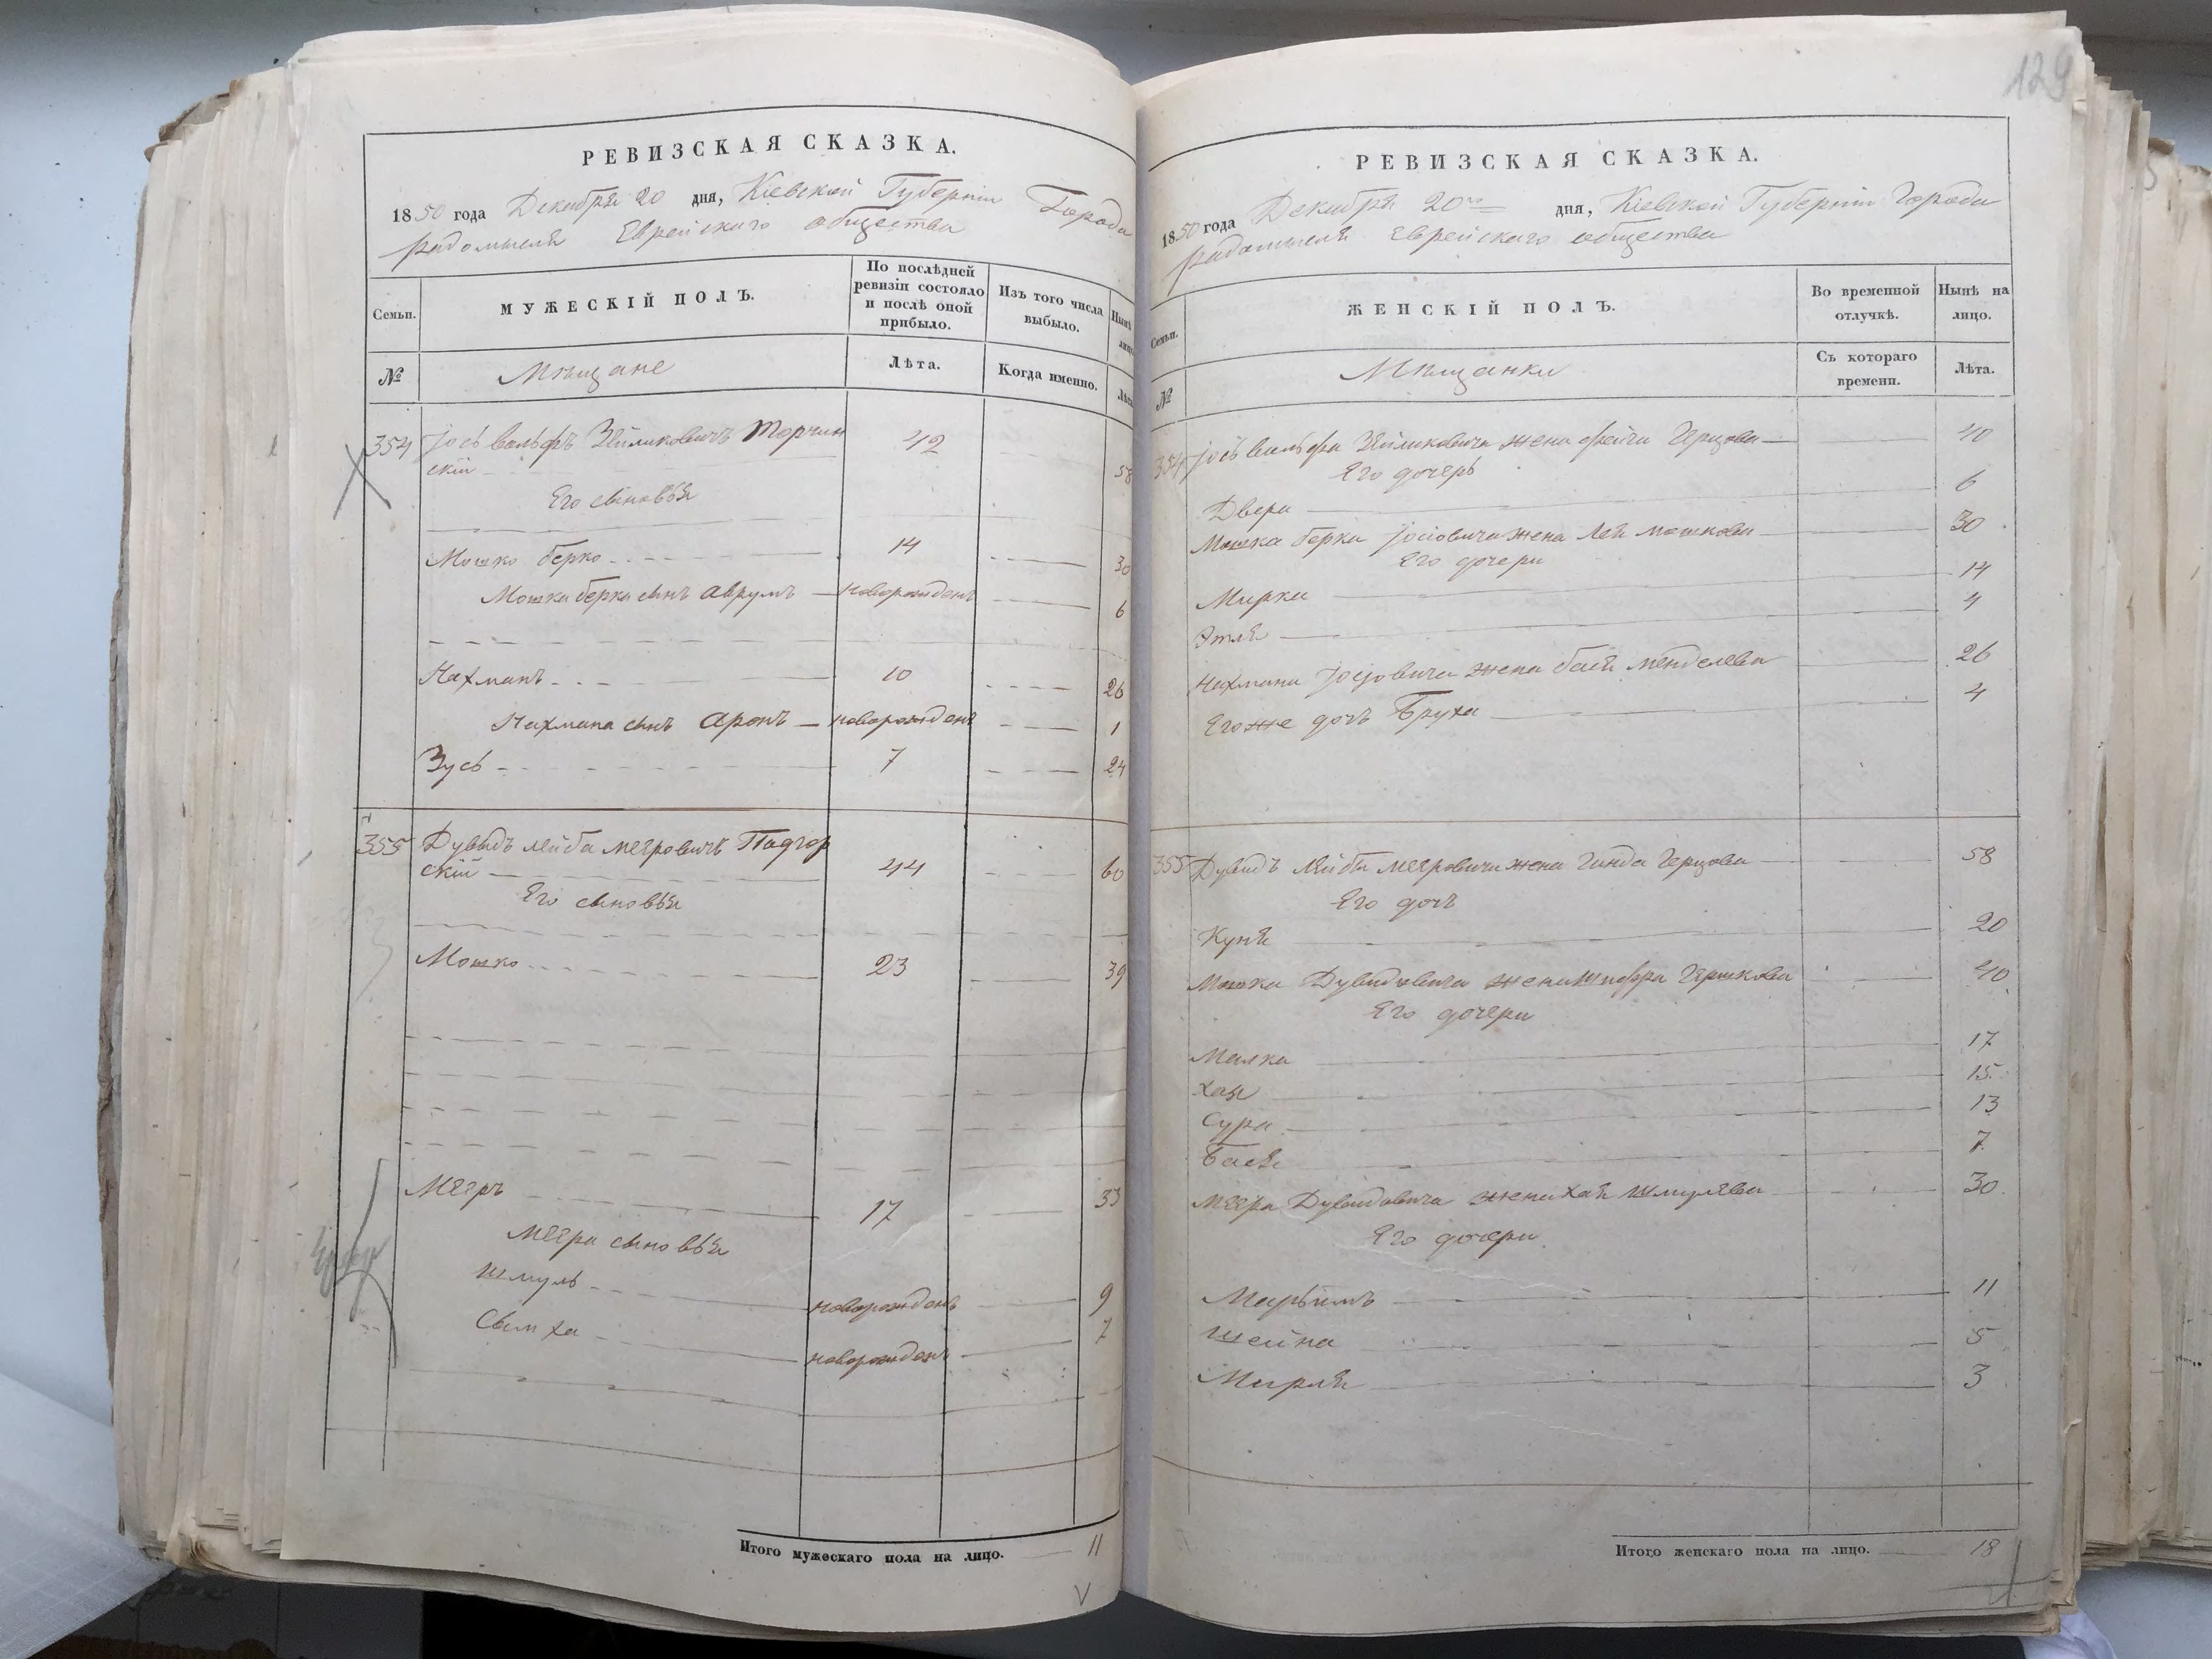 РЕВИЗСКАЯ СКАЗКА.
1850 года Декабря 20 дня, Кіевской Губерніи Города
радомысля Еврейскаго общества
Семьи.
МУЖЕСКІЙ ПОЛЪ.
По послѣдней
ревизіи состояло
и послѣ оной
прибыло.
Изъ того числа
выбыло.
№
Мѣщане
Лѣта.
Когда именно.
354 Іось вольфъ Зейликовичъ Торчин 42 58
скій
Его сыновья
Мошко берко 14 30
Мошка берка сынъ аврумъ новорожденъ 6
Нахманъ 10 26
Нахмана сынъ аронъ новорожденъ 1
Зусь 7 24
355 Дувидъ лейба мееровичъ Падгор
скій 44 60
Его сыновья
Мошко 23 39
Мееръ 17 33
Меера сыновья
Шмуль новорожденъ 9
Сымха новорожденъ 7
Итого мужескаго пола на лицо. 11
129
РЕВИЗСКАЯ СКАЗКА.
1850 года Декабря 20го дня, Кіевской Губерніи Города
радомысля Еврейскаго общества
Семьи.
ЖЕНСКІЙ ПОЛЪ.
Во временной
отлучкѣ.
Нынѣ на
лицо.
№
Мѣщанки
Съ котораго
времени.
Лѣта.
354 Іось вольфа Зейликовича жена фейга Герцова 40
Его дочерь
Двера 6
Мошка берка Іосіовича жена Лея мошкова 30
Его дочери
Мирка 14
Этля 4
Нахмана Іосіовича жена бася менделева 26
Егоже дочь Бруха 4
355 Дувидъ лейбы мееровича жена Гинда Герцова 58
Его дочь
Куня 20
Мошка Дувидовича жена шифра Гершкова 40
Его дочери
Малка 17
хая 15
Сура 13
Бася 7
меера Дувидовича жена хая шмулева 30
Его дочери
Марьямъ 11
Шейна 5
Мирля 3
Итого женскаго пола на лицо. 18